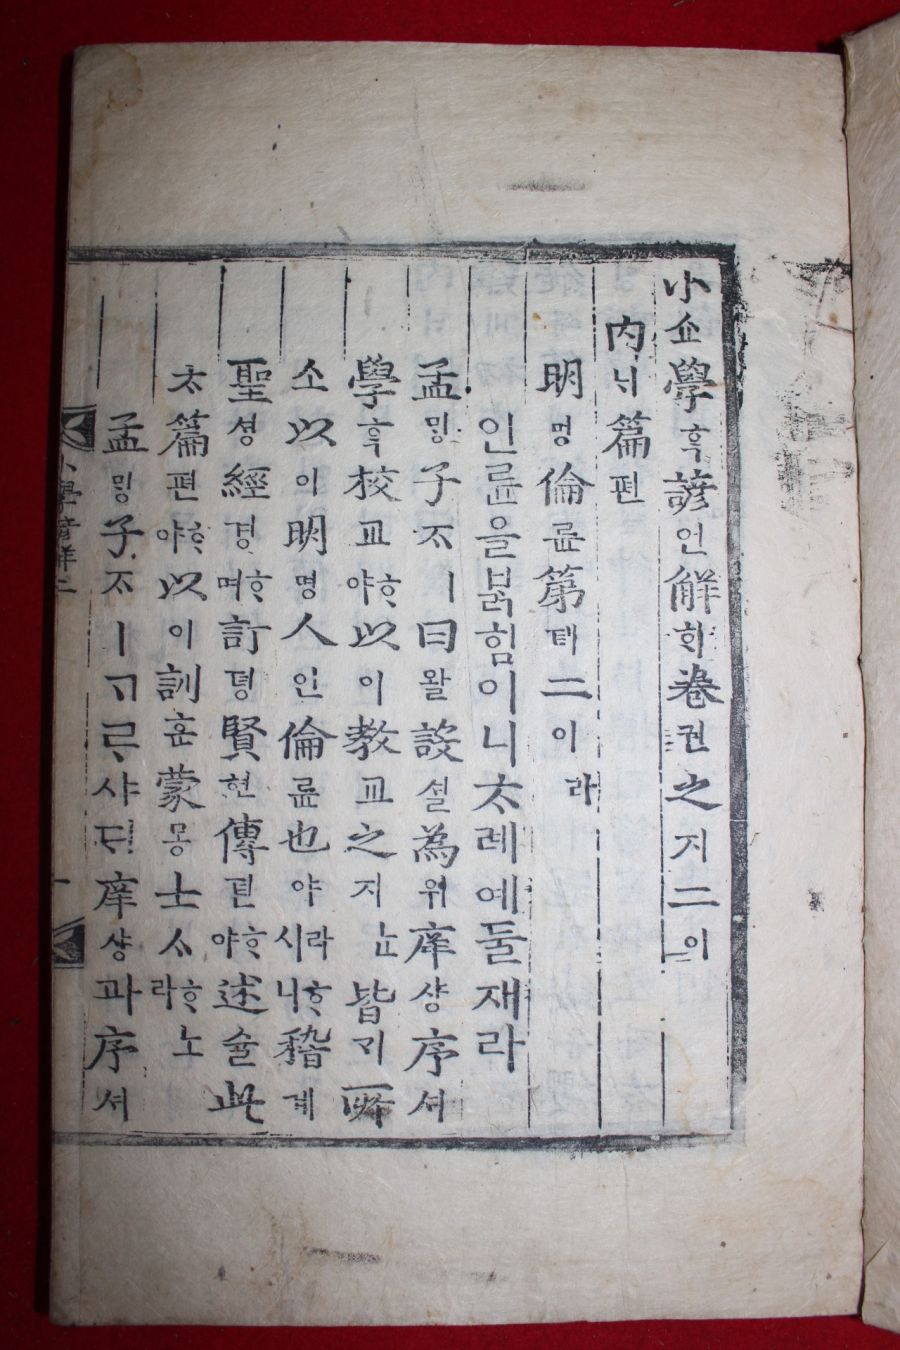 小쇼學ᄒᆞᆨ諺언解ᄒᆡ卷권之지二이
內ᄂᆡ篇편
明명倫륜第뎨二이라
인륜을ᄇᆞᆰ힘이니ᄎᆞ례예둘재라
孟ᄆᆡᆼ子ᄌᆞㅣ曰왈設셜為위庠샹序셔
學ᄒᆞᆨ校교ᄒᆞ야以이教교之지ᄂᆞᆫ皆ᄀᆡ所
소以이明명人인倫륜也야라ᄒᆞ시니稽계
聖셩經경ᄒᆞ며訂뎡賢현傳뎐ᄒᆞ야述슐此
ᄎᆞ篇편ᄒᆞ야以이訓훈蒙몽士ᄉᆞᄒᆞ노라
孟ᄆᆡᆼ子ᄌᆞㅣᄀᆞᄅᆞ샤ᄃᆡ庠샹과序셔
小學諺解二
一